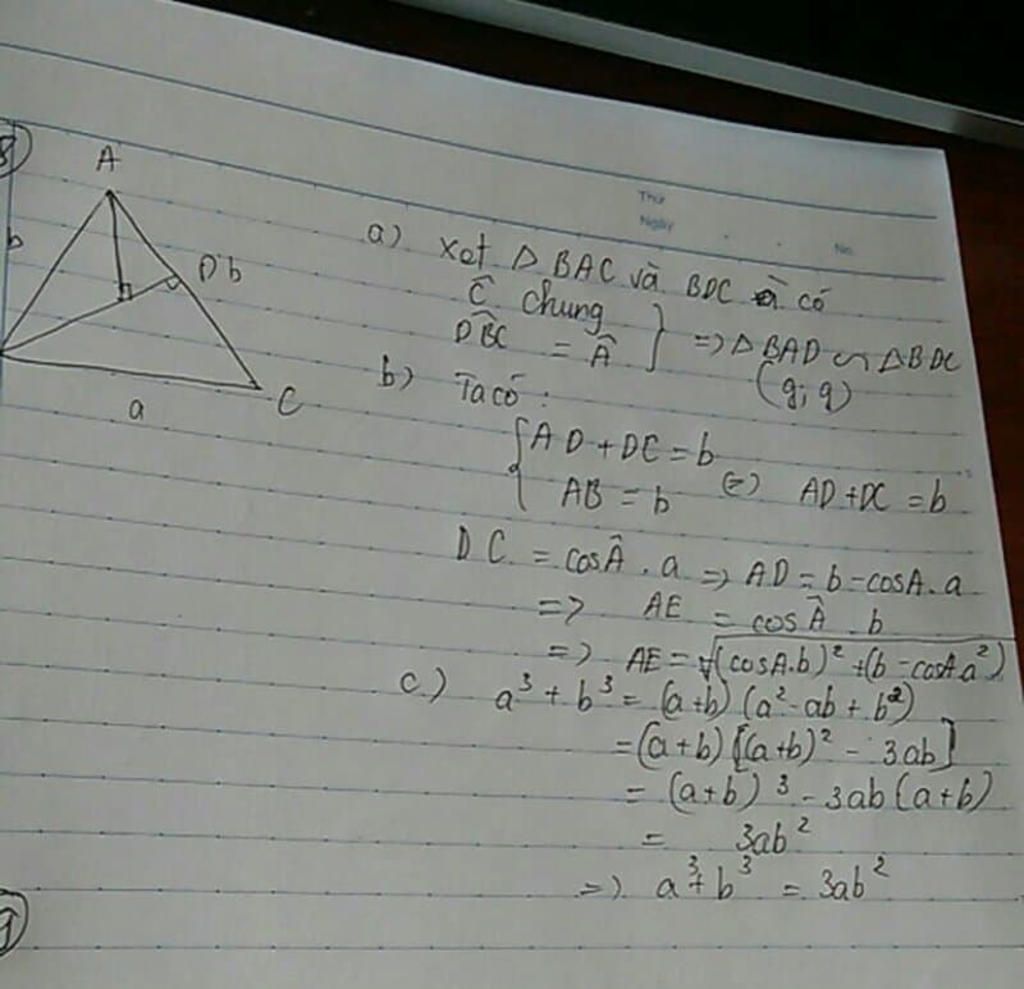 8)
A
b
D b
C
a
Thứ
Ngày
No.
a) Xet Δ BAC và BDC có
Ĉ chung
DB̂C = Â } => Δ BAD ∽ Δ BDC
(g; g)
b) Ta có :
{ AD + DC = b
AB = b (=) AD + DC = b
DC = cos Â . a => AD = b - cosA. a
=> AE = cos Â . b
=> AE = √(cosA.b)² + (b - cosA.a²)
c) a³ + b³ = (a+b) (a² - ab + b²)
= (a+b) [(a+b)² - 3ab]
= (a+b)³ - 3ab(a+b)
= 3ab²
=> a³ + b³ = 3ab²
9)